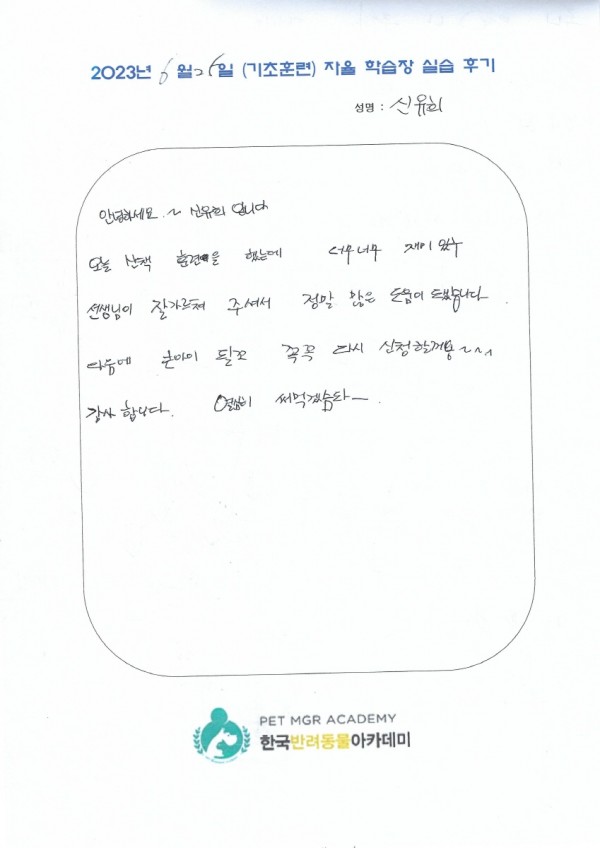 2023년 6월 25일 (기초훈련) 자율 학습장 실습 후기
성명 : 신유희
안녕하세요 ~ 신유희 입니다
오늘 산책 훈련을 했는데 너무너무 재미 있구
선생님이 잘가르쳐 주셔서 정말 많은 도움이 되었습니다.
다음에 큰아이 데리고 꼭꼭 다시 신청할께용~~~
감사 합니다. 열심히 써먹겠습다ㅡ
PET MGR ACADEMY
한국반려동물아카데미